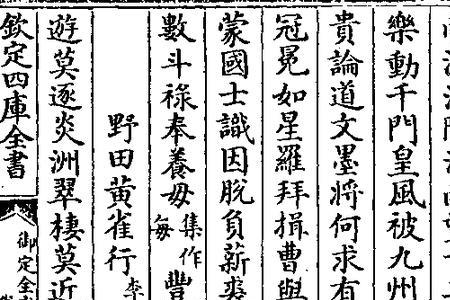 樂動千門皇風被九州
貴論道文墨將何求有
冠冕如星羅拜揖曹與
蒙國士識因脫負薪裘
數斗祿奉養毋集作每豐
野田黃雀行李
遊莫逐炎洲翠棲莫近
欽定四庫全書
御定全